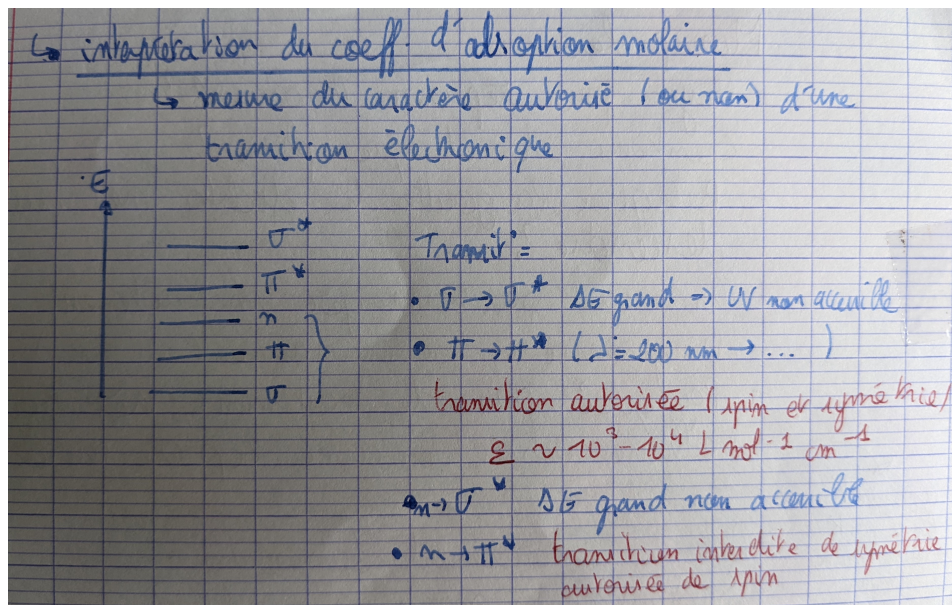 ↳ interprétation du coeff. d'adsorption molaire
↳ mesure du caractère autorisé (ou non) d'une
transition électronique
E
σ*
π*
n
π
σ
Transit° =
• σ → σ* ΔE grand => UV non accessible
• π → π* (λ = 200 nm → ... )
transition autorisée (spin et symétrie)
ε ~ 10³ - 10⁴ L mol⁻¹ cm⁻¹
• n → σ* ΔE grand non accessible
• n → π* transition interdite de symétrie
autorisée de spin